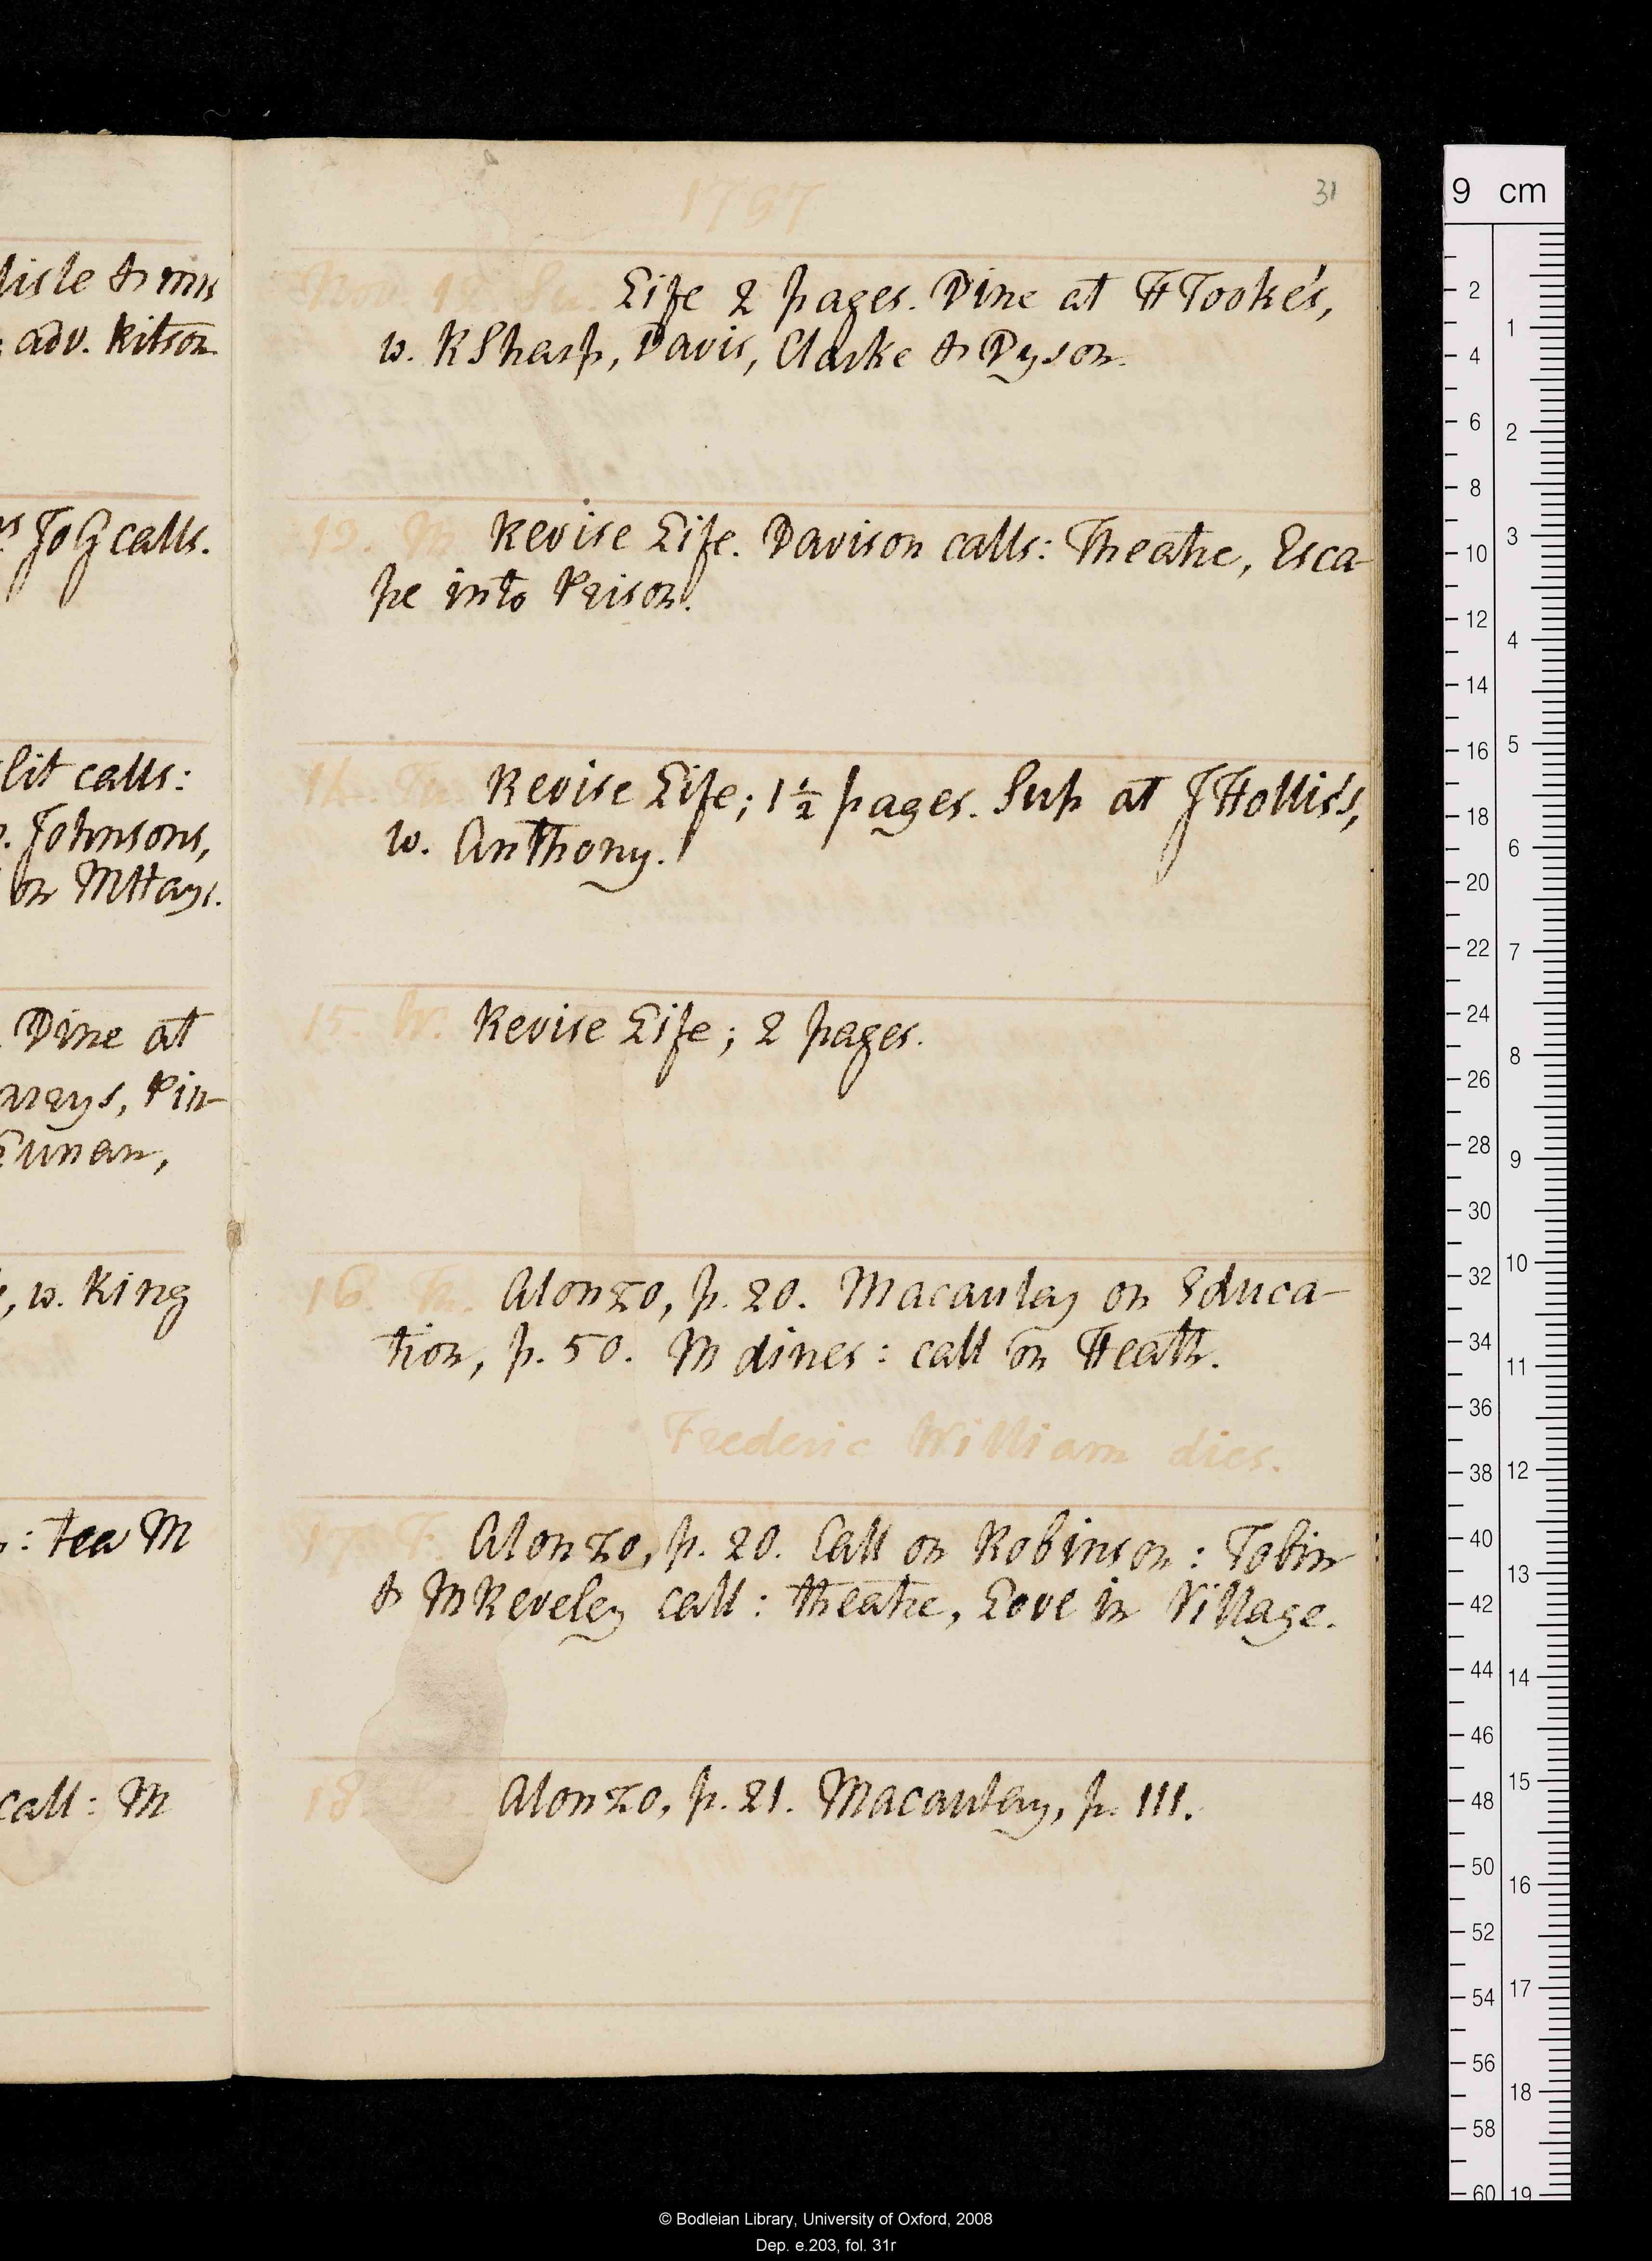 lisle & mrs
adv. Kitson
Jo G calls.
lit calls:
Johnsons,
on MHays.
Dine at
Pin-
w. King
: tea M
call: M
1797
31
Nov. 12. Su. Life 2 pages. Dine at HTooke's,
w. RSharp, Davis, Clarke & Dyson.
13. M. Revise Life. Davison calls: Theatre, Esca-
pe into Prison.
14. Tu. Revise Life; 1½ pages. Sup at JHollis's,
w. Anthony.
15. W. Revise Life; 2 pages.
16. Th. Alonzo, p. 20. Macaulay on Educa-
tion, p. 50. M dines: call on Heath.
Frederic William dies.
17. F. Alonzo, p. 20. Call on Robinson: Tobin
& MReveley call: theatre, Love in Village.
18. Alonzo, p. 21. Macaulay, p. 111.
9 cm
2
4
6
8
10
12
14
16
18
20
22
24
26
28
30
32
34
36
38
40
42
44
46
48
50
52
54
56
58
60
1
2
3
4
5
6
7
8
9
10
11
12
13
14
15
16
17
18
19
© Bodleian Library, University of Oxford, 2008
Dep. e.203, fol. 31r